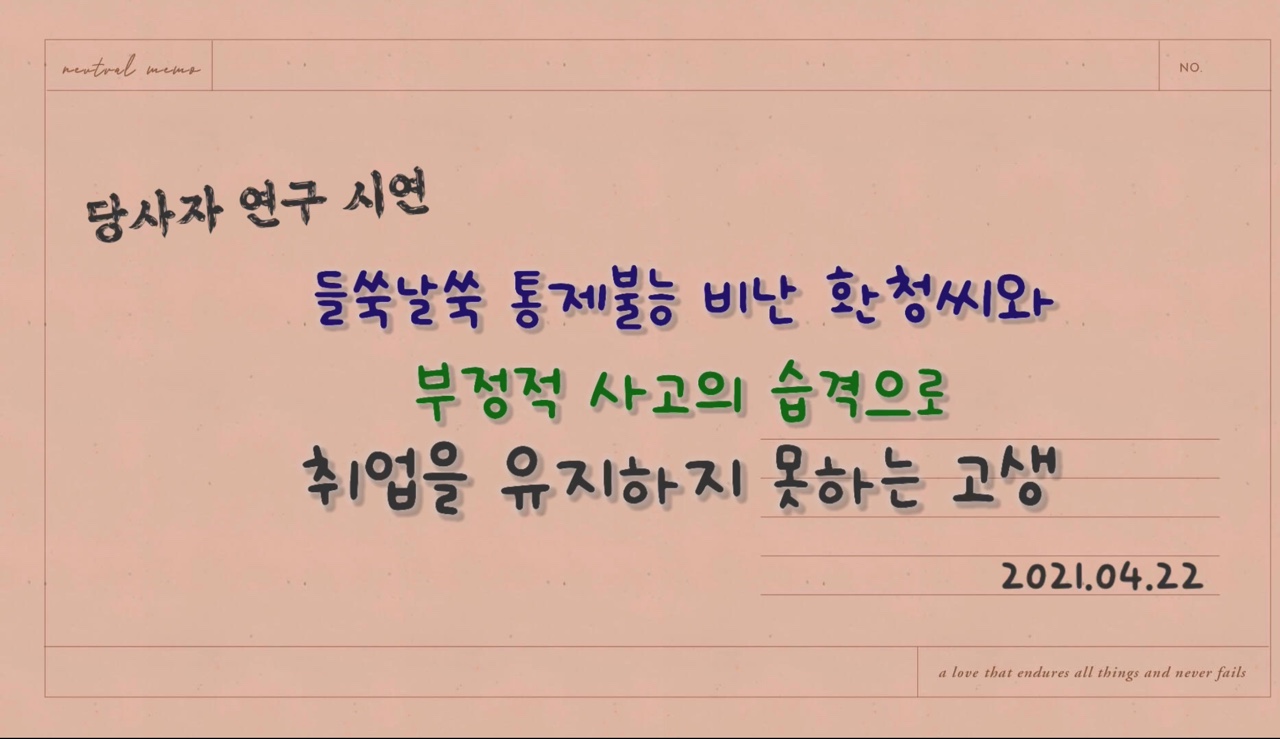 neutral memo
NO.
당사자 연구 시연
들쑥날쑥 통제불능 비난 환청씨와
부정적 사고의 습격으로
취업을 유지하지 못하는 고생
2021.04.22
a love that endures all things and never fails